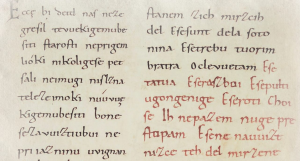 Ecce bi detd naſ neze
greſil tevuekigemube
ſiti ſtaroſti neprigem
lioki nikoligeſe pet
ſali neimugi niſlzna
telezeimoki nuúvue
kigemubeſiti bone
ſezavuiztiubui ne
priiazninu uvignan
ſtanem zich mirzcih
del Eſeſunt dela ſoto
nina Eſetrebu tuorim
bratra Oclevuetam Eſe
tatua Eſeraſboi Eſepulti
ugongenige Eſeroti Choi
ſe Ih nepazem nuge pre
ſtopam Eſene nauuizt
nizce teh del mirzene